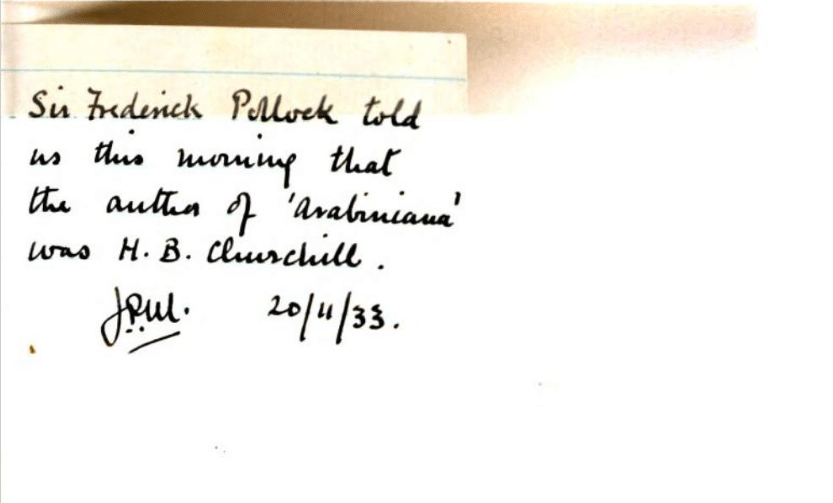 Sir Frederick Pollock told
us this morning that
the author of 'Arabiniana'
was H. B. Churchill.
20/11/33.